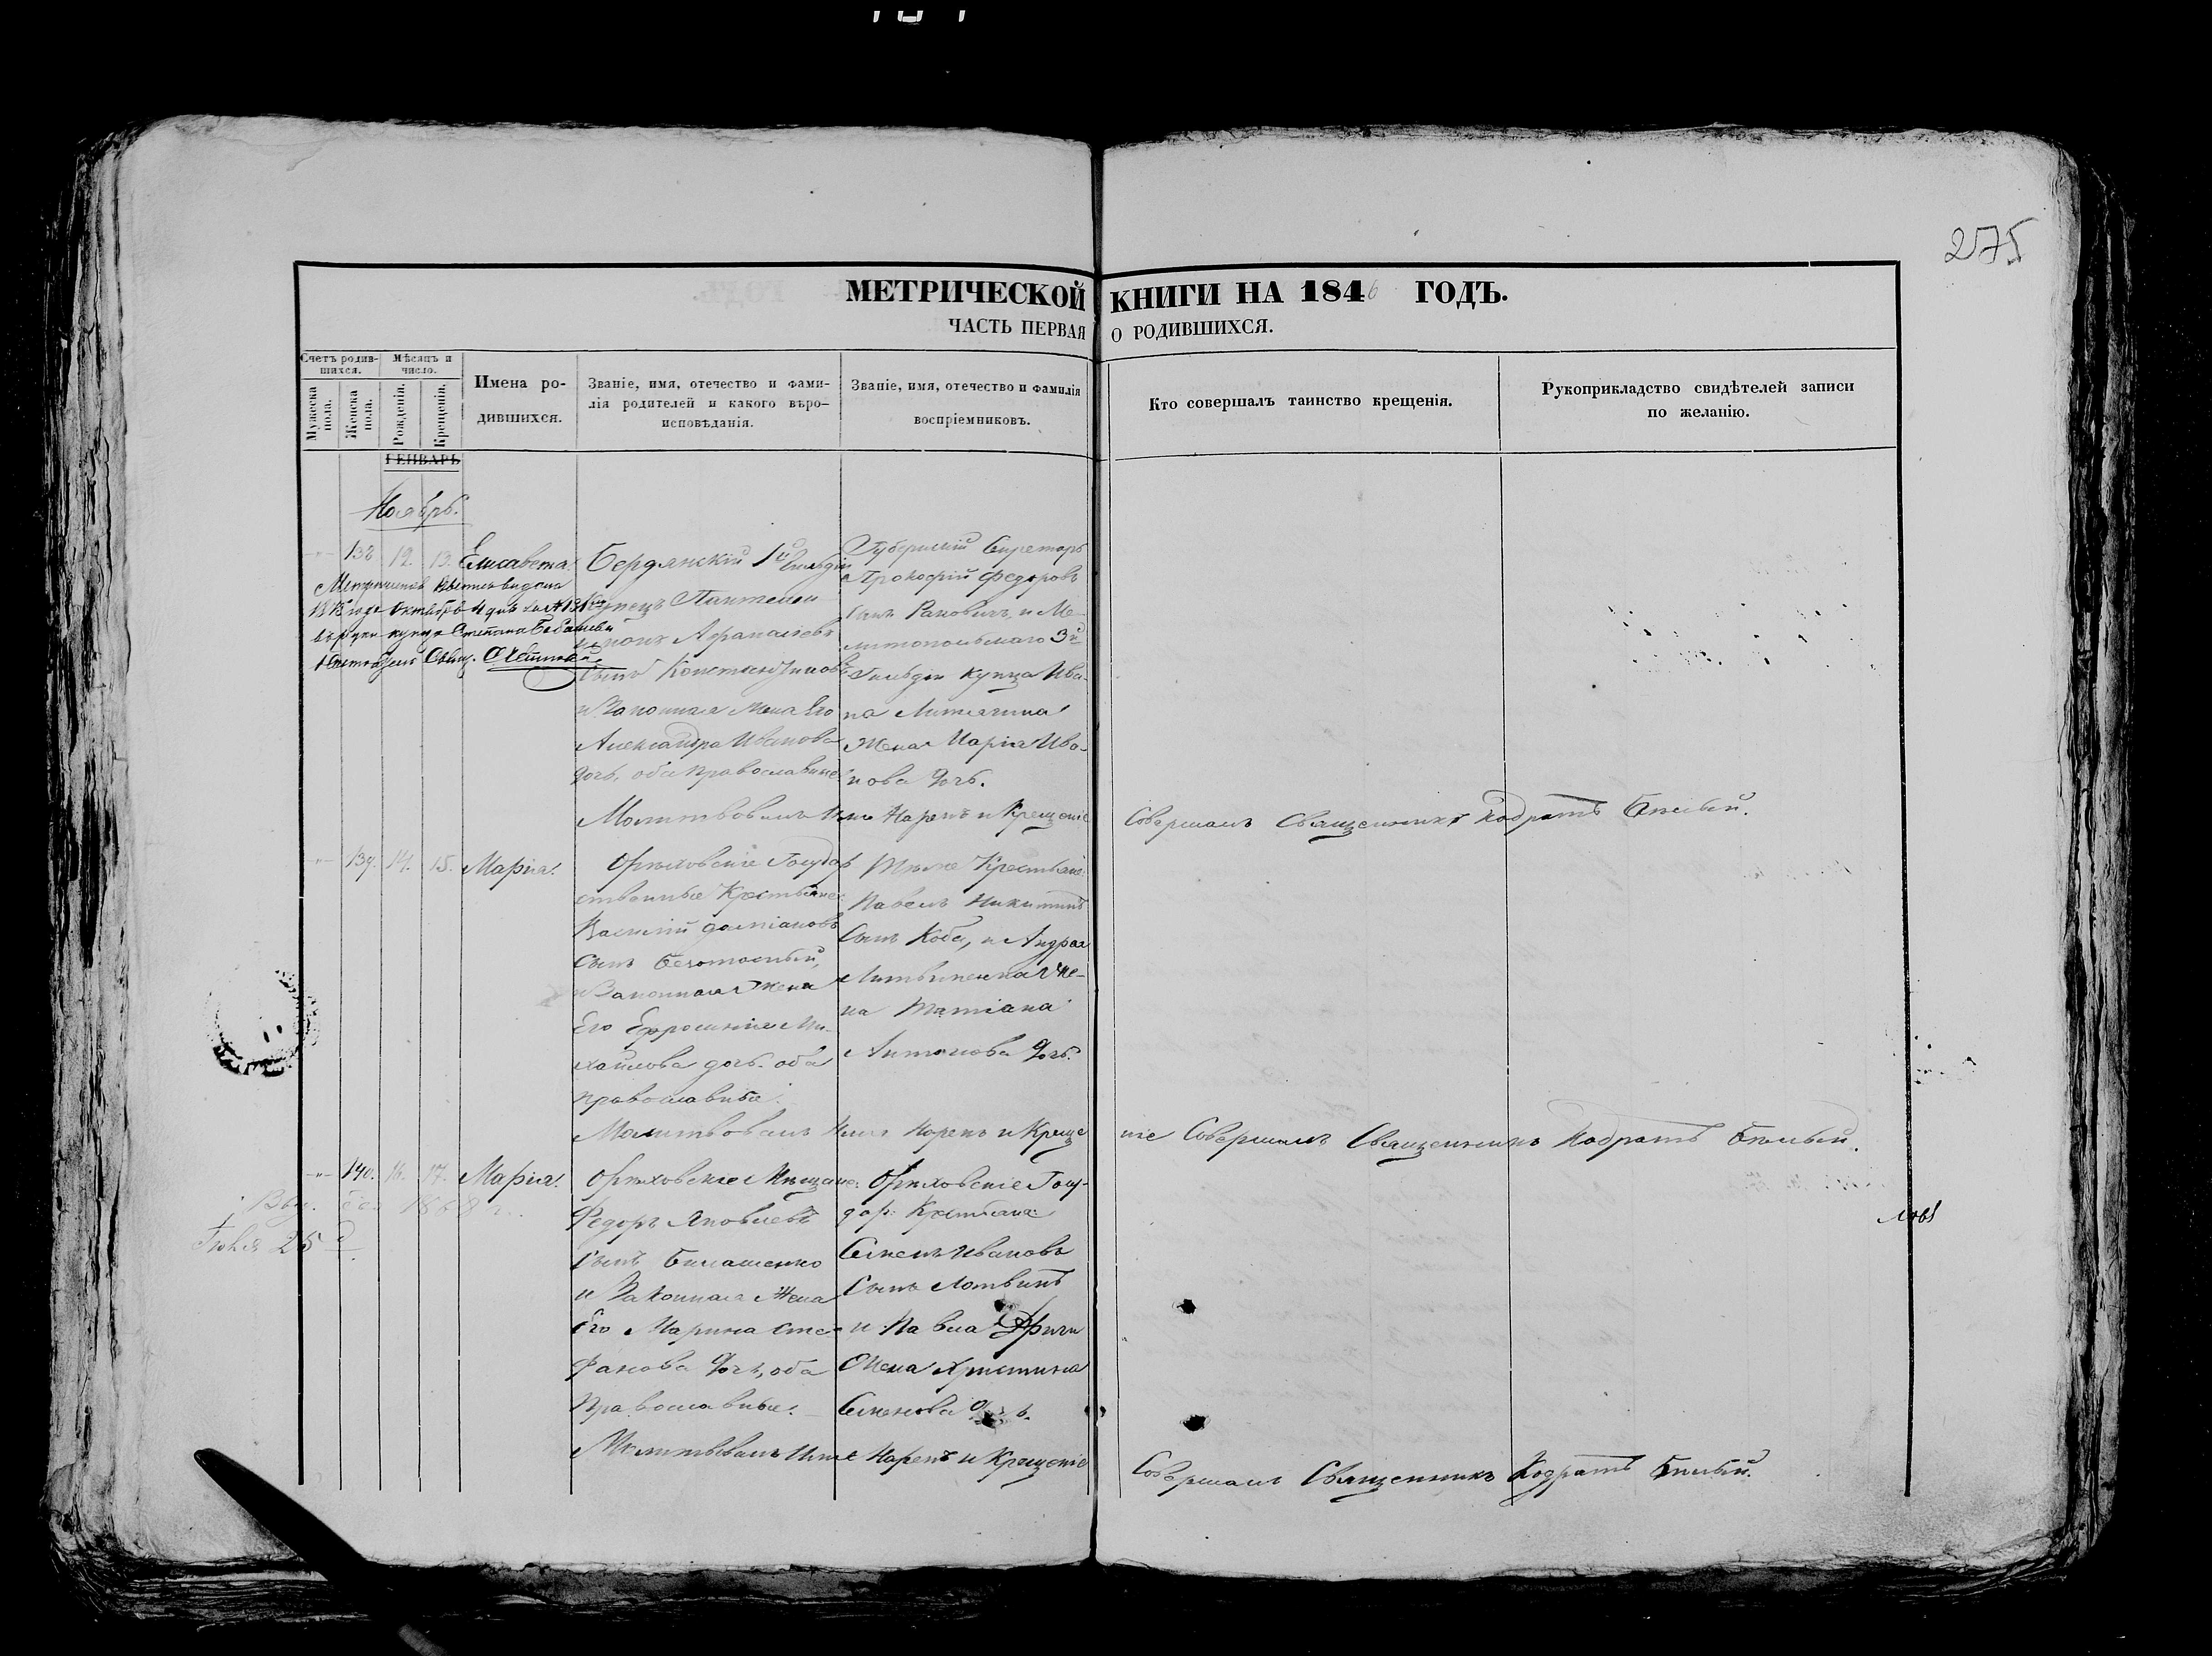 275
МЕТРИЧЕСКОЙ КНИГИ НА 1846 ГОДЪ.
ЧАСТЬ ПЕРВАЯ О РОДИВШИХСЯ.
Счетъ родив-
шихся.
Мужеска пола.
Женска пола.
Мѣсяцъ и
число.
Рожденія.
Крещенія.
Имена ро-
дившихся.
Званіе, имя, отечество и фами-
лія родителей и какого вѣро-
исповѣданія.
Званіе, имя, отечество и фамилія
воспріемниковъ.
Кто совершалъ таинство крещенія.
Рукоприкладство свидѣтелей записи
по желанію.
ГЕНВАРЬ
Ноябрь.
138 12. 13. Елисавета.
Бердянскій 1й Гильдіи
Купецъ Пантелеи
Афанасіевъ
Сынъ Константиновъ
и Законная Жена Его
Александра Иванова
дочь, оба православные
Губернскій Секретарь
Прокофій Федоровъ
Сынъ Раковичъ, и Ме-
литопольскаго 3й
Гильдіи Купца Ива-
на Литягина
Жена Марія Ива-
нова дочь.
Молитвовалъ Имя Нарекъ и Крещеніе Совершалъ Священникъ Кодратъ Бѣлый.
139. 14. 15. Марія.
Орѣховскіе Государ
ственные Крестьяне
Василій
Сынъ
и Законная Жена
Его Ефросинія Ми-
хайлова дочь. оба
православные.
Тѣже Крестьяне
Павелъ Никитинъ
Сынъ Коба, и Андрея
Литвиненка Же-
на Татіана
Антонова дочь.
Молитвовалъ Имя Нарекъ и Креще
ніе Совершалъ Священникъ Кодратъ Бѣлый.
140. 16. 17. Марія.
Орѣховскіе Мѣщане
Федоръ Яковлевъ
Сынъ Билашенко
и Законная Жена
Его Марина Сте-
фанова дочь, оба
Православные.
Орѣховскіе Госу-
дар: Крестьяне
Семенъ Ивановъ
Сынъ Литвинъ
и Павла
Жена Христина
Семенова
Молитвовалъ Имя Нарекъ и Крещеніе
Совершалъ Священникъ Кодратъ Бѣлый.